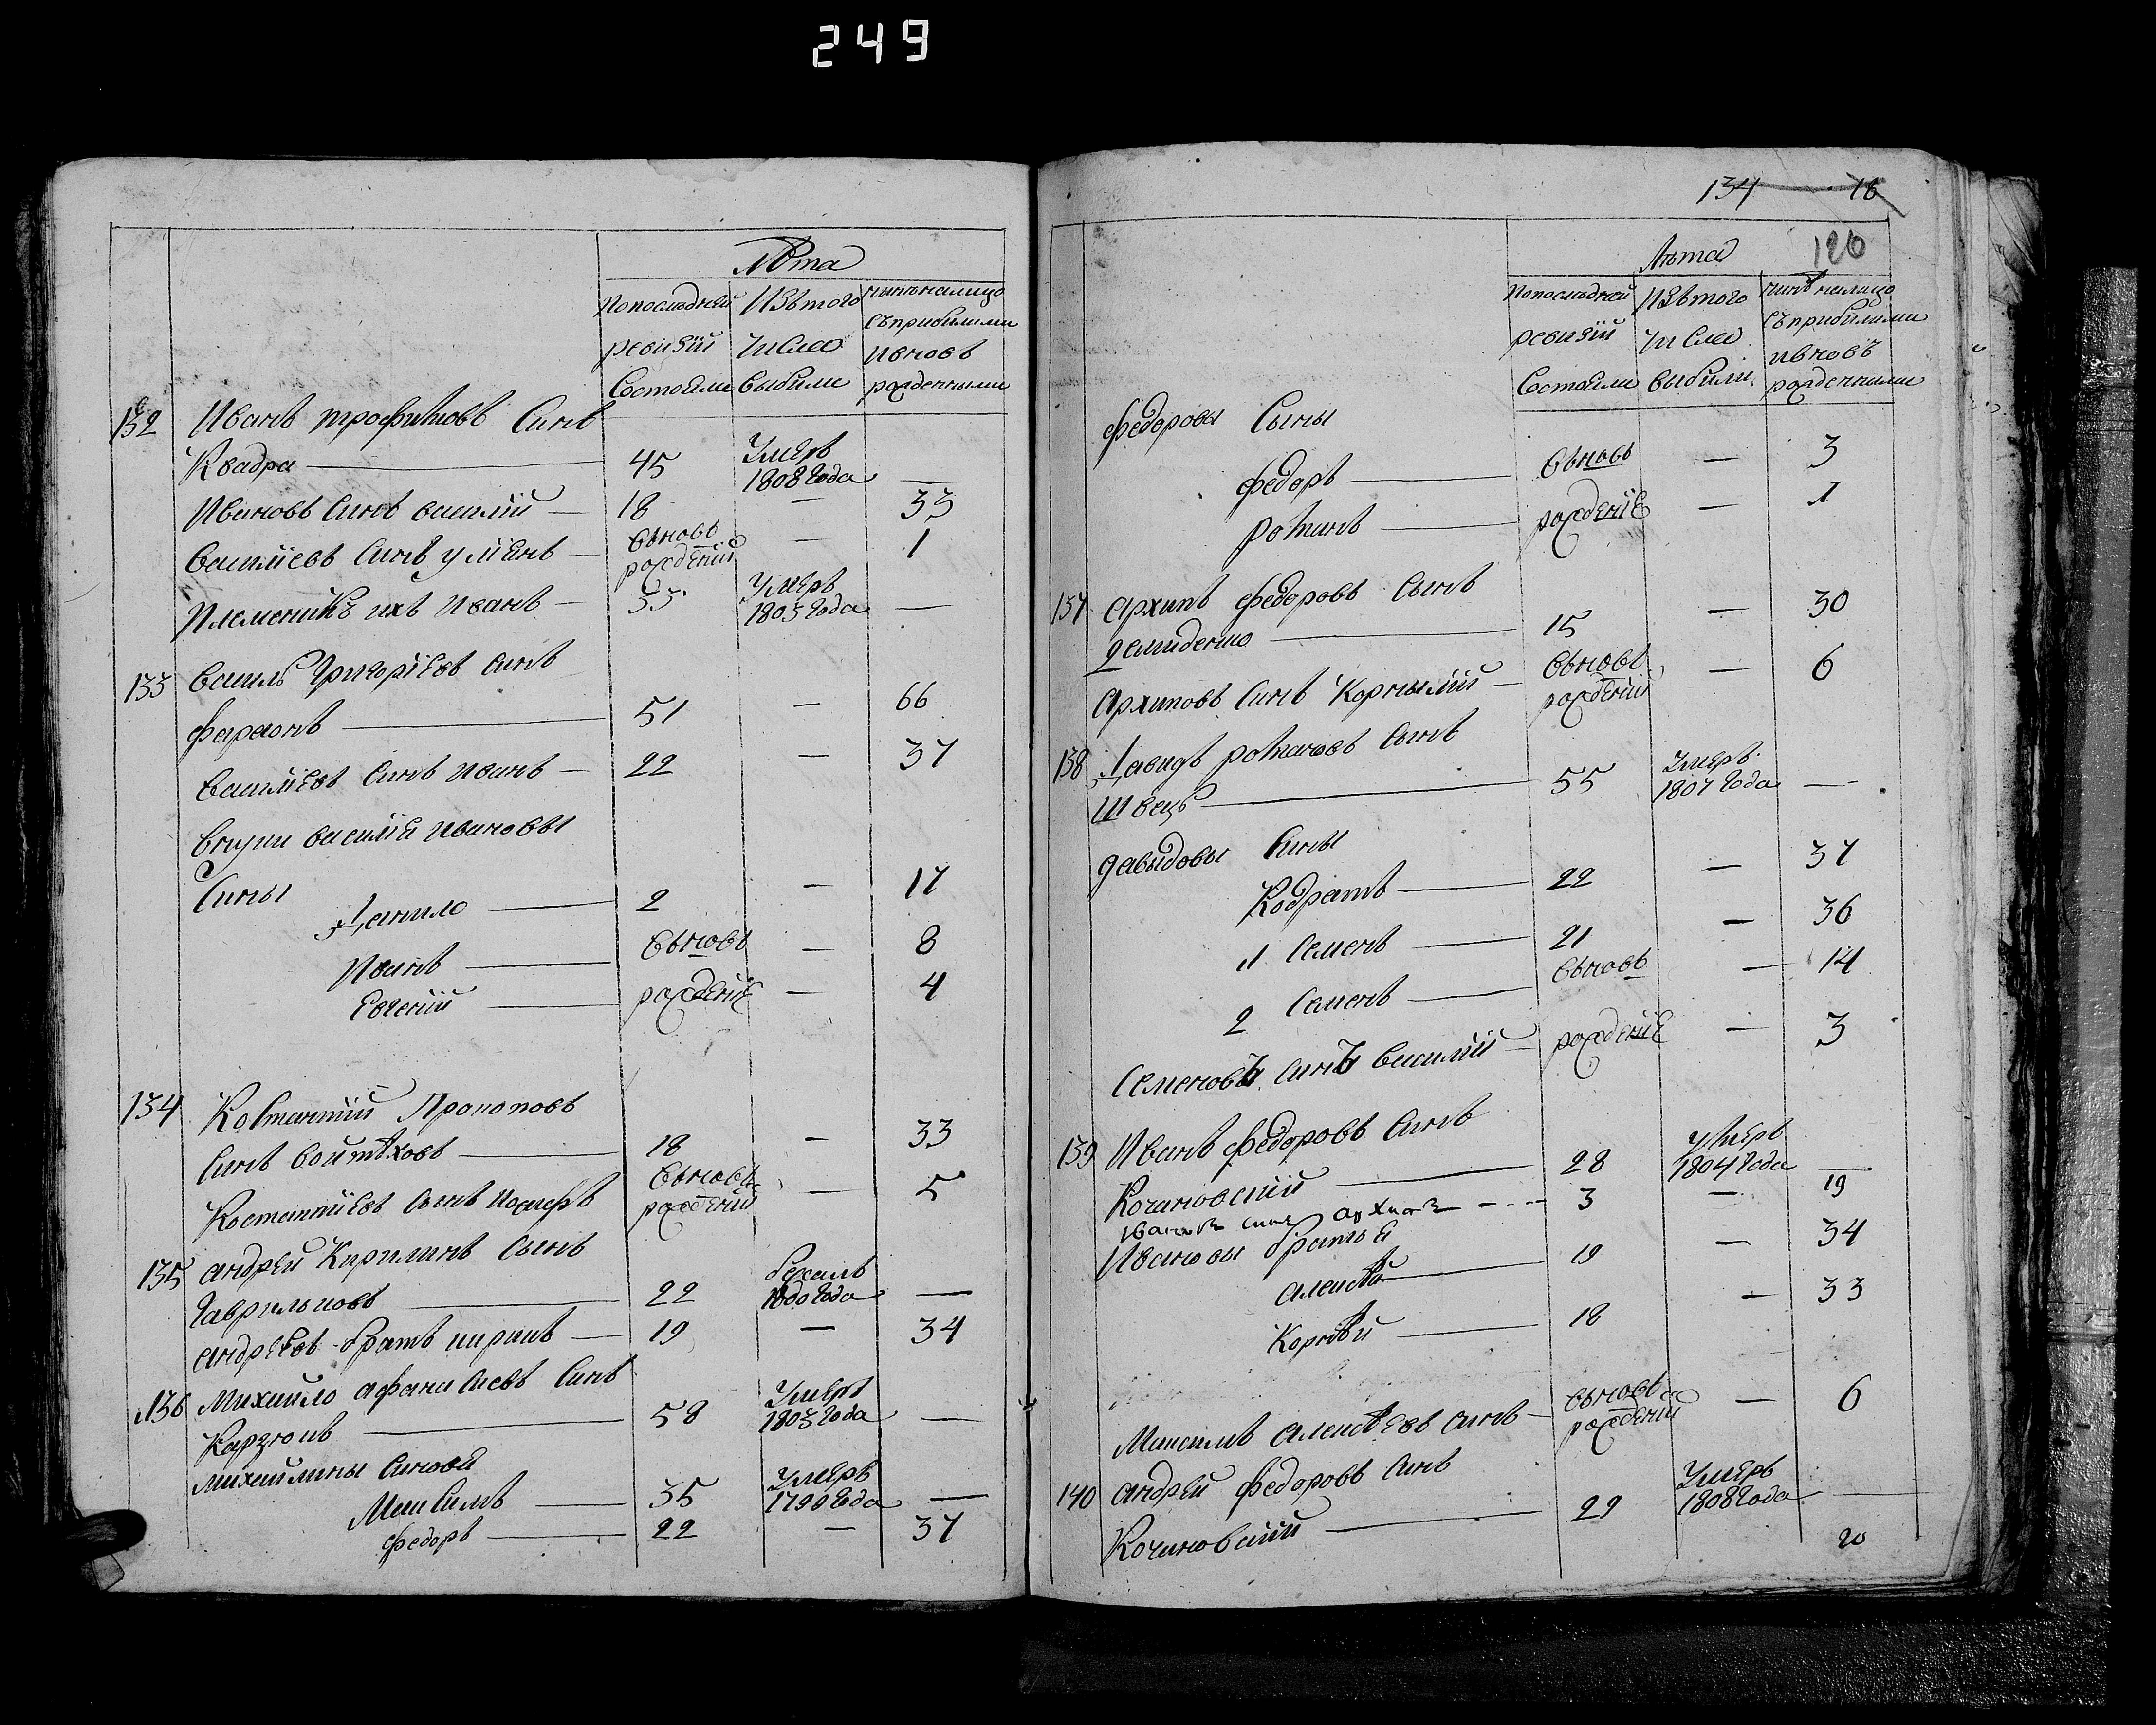 249
Лѣта
Попослѣдней
ревизїи
Состояли
Изътого
числа
выбыли
нынѣналицо
съприбилими
ивновъ
рожденними
132 Иванъ трофимовъ Синъ
Квадра — 45 Умеръ 1808 года —
Ивановъ Синъ василїй — 18 — 33
василїевъ Синъ улїянъ — вьновь рожденїй — 1
Племеникъ ихъ иванъ — 55 Умеръ 1805 года —
133 василь григорїевъ синъ
фараонъ — 51 — 66
василїевъ Синъ иванъ — 22 — 37
внуки василїя ивановы
Сины
Данило — 2 — 17
Иванъ — вьновь — 8
Евгенїй — рожденїе — 4
134 Костантїй Прокоповъ
Синъ войтѣховъ — 18 — 33
Костантїевъ Сынъ иосифъ вьновь рожденїй — 5
135 андрей Кирилинъ Сынъ
гаврильковъ — 22 бежалъ 1800 года —
андреевъ братъ кирикъ — 19 — 34
136 михайло афанасиевъ Синъ
Карзюкъ — 58 Умеръ 1803 года —
михайлины Синовя
Максимъ — 35 Умеръ 1799 года —
федоръ — 22 — 37
134 18
120
Лѣта
Попослѣдней
ревизїи
Состояли
Изътого
числа
выбыли
нинѣналицо
съприбилими
ивновъ
рожденними
федоровы Сыны
федоръ — вьновь — 3
романъ — рожденїе — 1
137 архипъ федоровъ Сынъ
демиденко — 15 — 30
архиповъ Синъ Корнылїй — вьновь рожденїй — 6
138 Давидъ романовъ Сынъ
Швецъ — 55 Умеръ 1807 года —
давыдовы Сины
Кодратъ — 22 — 37
1 Семенъ — 21 — 36
2 Семенъ — вьновь — 14
Семеновъ синъ василїй — рожденїе — 3
139 Иванъ федоровъ Синъ
Кочановскїй — 28 умеръ 1804 года —
ивановъ синъ архипъ — 3 — 19
Ивановы братья
алексѣй — 19 — 34
Корнѣй — 18 — 33
Максимъ алексѣевъ синъ — вьновь рожденїй — 6
140 андрей федоровъ Синъ
Кочановскїй — 29 Умеръ 1808 года —
20